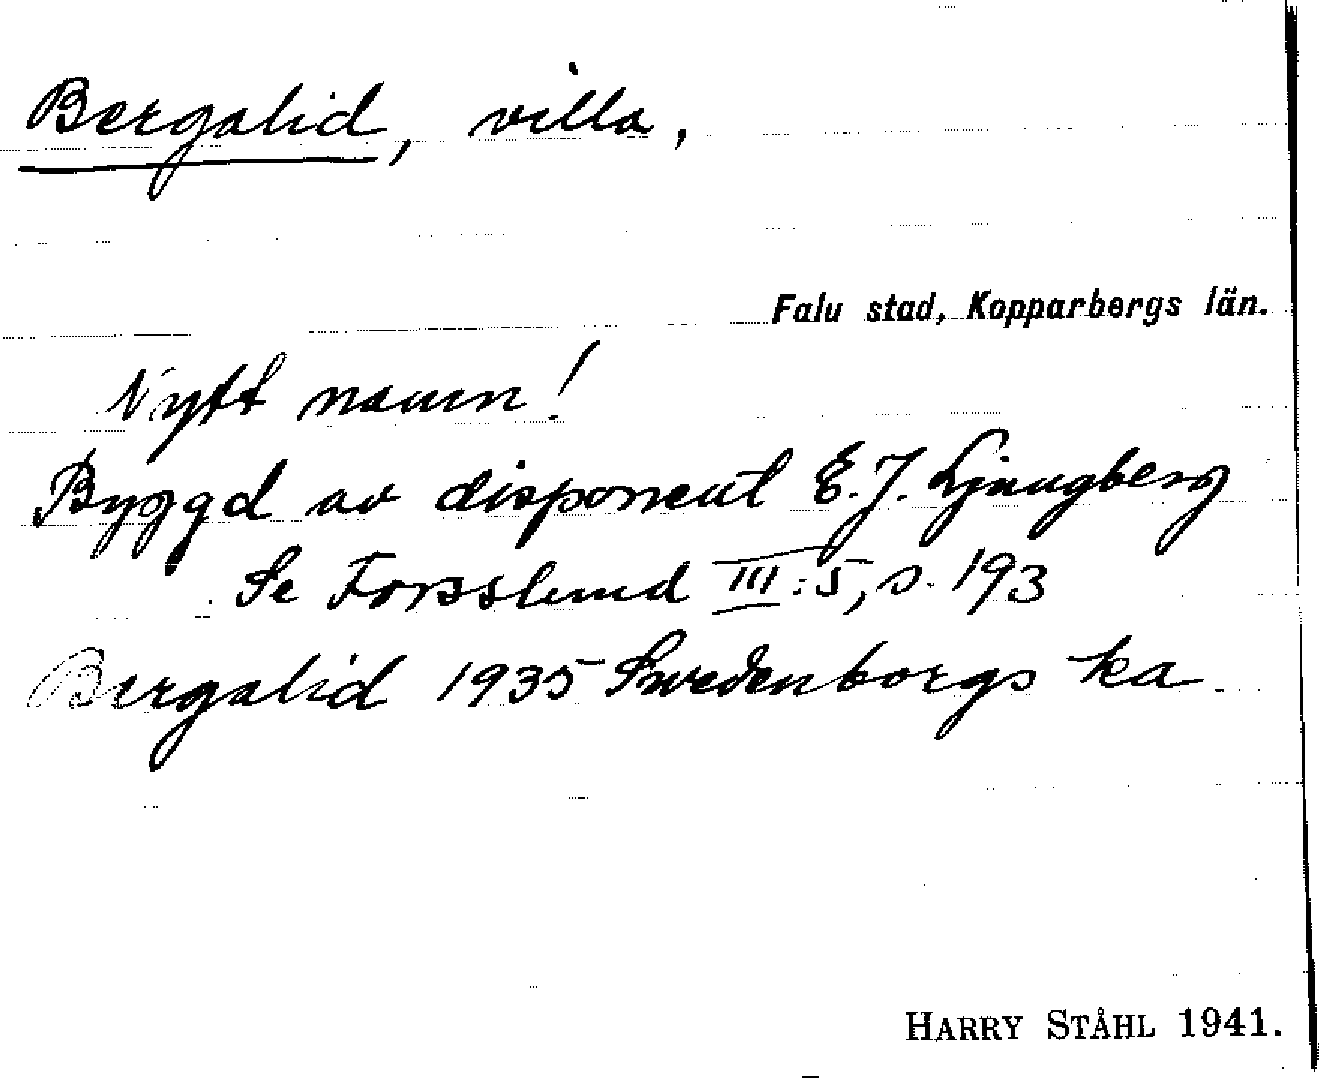 Bergalid, villa,
Falu stad, Kopparbergs län.
Nytt namn!
Byggd av disponent E. J. Ljungberg
Se Forsslund III:5, s. 193
Bergalid 1935 Swedenborgs ka
HARRY STÅHL 1941.